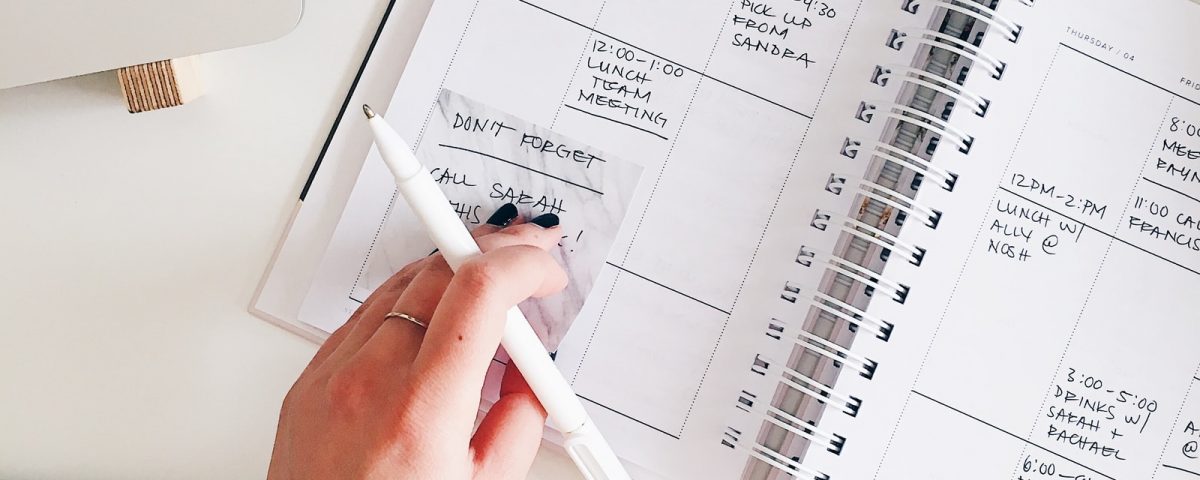 :30
PICK UP
FROM
SANDRA
12:00-1:00
LUNCH
TEAM
MEETING
DON'T FORGET
CALL SARAH
THIS
!
THURSDAY / 04
12PM-2:PM
LUNCH W/
ALLY @
NOSH
3:00-5:00
DRINKS W/
SARAH +
RACHAEL
6:00-
FRID
8:00
MEE
RAYN
11:00 CAL
FRANCIS
A
@